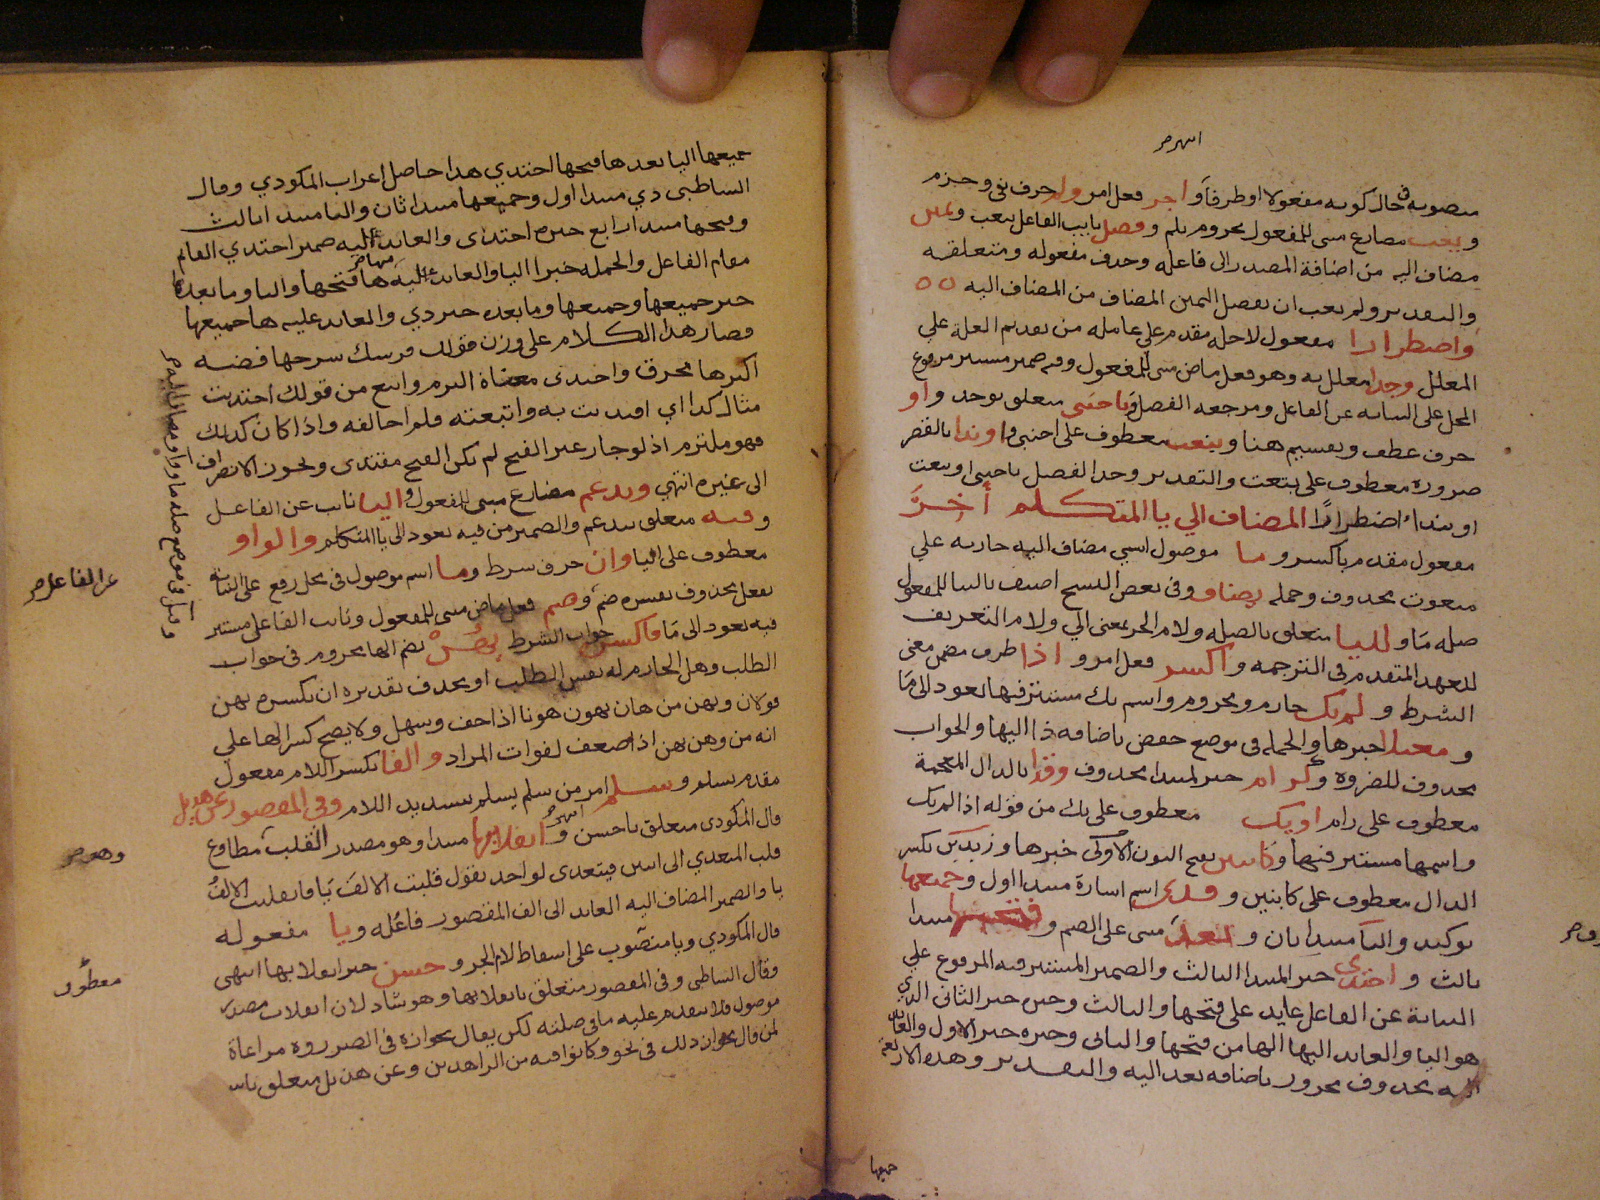 منصوبه في حال كونه مفعولا او ظرفا و اجز فعل امر ولم حرف نفي وجزم
و يعب مضارع مبني للمفعول مجزوم بلم و فصل نايب الفاعل بيعب و يمين
مضاف اليه من اضافة المصدر الى فاعله وحذف مفعوله ومتعلقه
والتقدير ولم يعب ان يفصل اليمين المضاف من المضاف اليه
واضطرارا مفعول لاجله مقدم على عامله من تقديم العلة علي
المعلل وجدا معلل به وهو فعل ماض مبني للمفعول وفيه ضمير مستتر مرفوع
المحل على النيابه عن الفاعل ومرجعه الفصل و باجنبي متعلق بوجد و او
حرف عطف وتقسيم هنا و بنعت معطوف على اجنبي و او ندا بالقصر
ضرورة معطوف على بنعت والتقدير وجد الفصل باجنبي او بنعت
او بنداء اضطرارا المضاف الي يا المتكلم أخِرَ
مفعول مقدم باكسر و ما موصول اسمي مضاف اليه جاريه علي
منعوت محذوف وجمله يضاف وفي بعض النسخ اضيف بالبنا للمفعول
صله ما و لليا متعلق بالصله ولام الجر بمعنى الي ولام التعريف
للعهد المتقدم في الترجمه و اكسر فعل امر و اذا ظرف مضمن معنى
الشرط و لم يك جازم ومجزوم واسم يك مستتر فيها يعود الى ما
و معتلا خبرها والجمله في موضع خفض باضافه اذا اليها والجواب
محذوف للضروه و كرام خبر لمبتدا محذوف وقذا بالذال المعجمة
معطوف على رام او يك معطوف على يك من قوله اذا لم يك
واسمها مستتر فيها و كابنين بفتح النون الاولى خبرها و زيدين بكسر
الدال معطوف على كابنين و فذي اسم اشارة مبتدا اول و جميعها
توكيد واليا مبتدا ثان و بعد مبني على الضم و فتحها مبتدا
ثالث و احتذي خبر المبتدا الثالث والضمير المستتر فيه المرفوع علي
النيابة عن الفاعل عايد على فتحها والثالث وخبره خبر الثاني الذي
هو اليا والعايد اليها الها من فتحها والثاني وخبره خبر الاول والعايد
اليه محذوف مجرور باضافه بعد اليه والتقدير وهذه الاربعة
جميعها
جميعها اليا بعدها فتحها احتذي هذا حاصل اعراب المكودي وقال
الشاطبي ذي مبتدا اول وجميعها مبتدا ثان واليا مبتدا ثالث
وفتحها مبتدا رابع خبره احتذي والعايد اليه ضمير احتذي القايم
مقام الفاعل والجمله خبر اليا والعايد اليه ها فتحها واليا وما بعدها
خبر جميعها وجميعها وما بعده خبر ذي والعايد عليه ها جميعها
فصار هذا الكلام على وزن قولك فرسك سرجها فضه
اكثرها محرق واحتذى معناه التزم واتبع من قولك احتذيت
مثال كذا اي اقتديت به واتبعته فلم اخالفه واذا كان كذلك
فهو ملتزم اذ لو جاز غير الفتح لم يكن الفتح مقتدى ولجوز الانصراف
الى غيره انتهي و تدغم مضارع مبني للمفعول و اليا نايب عن الفاعل
و فيه متعلق بتدغم والضمير من فيه يعود الى يا المتكلم والواو
معطوف على اليا وان حرف شرط و ما اسم موصول في محل رفع على النيابة
بفعل محذوف يفسره ضم و ضم فعل ماض مبني للمفعول ونايب الفاعل مستتر
فيه يعود الى ما فاكسره جواب الشرط يهُنْ بضم الها مجزوم في جواب
الطلب وهل الجازم له نفس الطلب او محذوف تقديره ان تكسره يهن
قولان ويهن من هان يهون هونا اذا خف وسهل ولا يصح كسر الها علي
انه من وهن يهن اذا ضعف لفوات المراد و الفا بكسر اللام مفعول
مقدم بسلم و سلم امر من سلم يسلم بتشديد اللام وفي المقصور عن هذيل
قال المكودي متعلق باحسن و انقلابها مبتدا وهو مصدر انقلب مطاوع
قلب المتعدي الى اثنين فيتعدى لواحد تقول قلبت الالف يا فانقلبت الالف
يا والضمير المضاف اليه العايد الى الف المقصور فاعله و يا مفعوله
قال المكودي ويا منصوب على اسقاط لام الجر و حسن خبر انقلابها انتهى
وقال الشاطبي وفي المقصور متعلق بانقلابها وهو شاذ لان انقلاب مصدر
موصول فلا يتقدم عليه ما في صلته لكن يقال بجوازه في الضروره مراعاة
لمن قال بجواز ذلك في نحو وكانوا فيه من الزاهدين وعن هذيل متعلق
عن الفاعل صح
وهو صح
معطوف